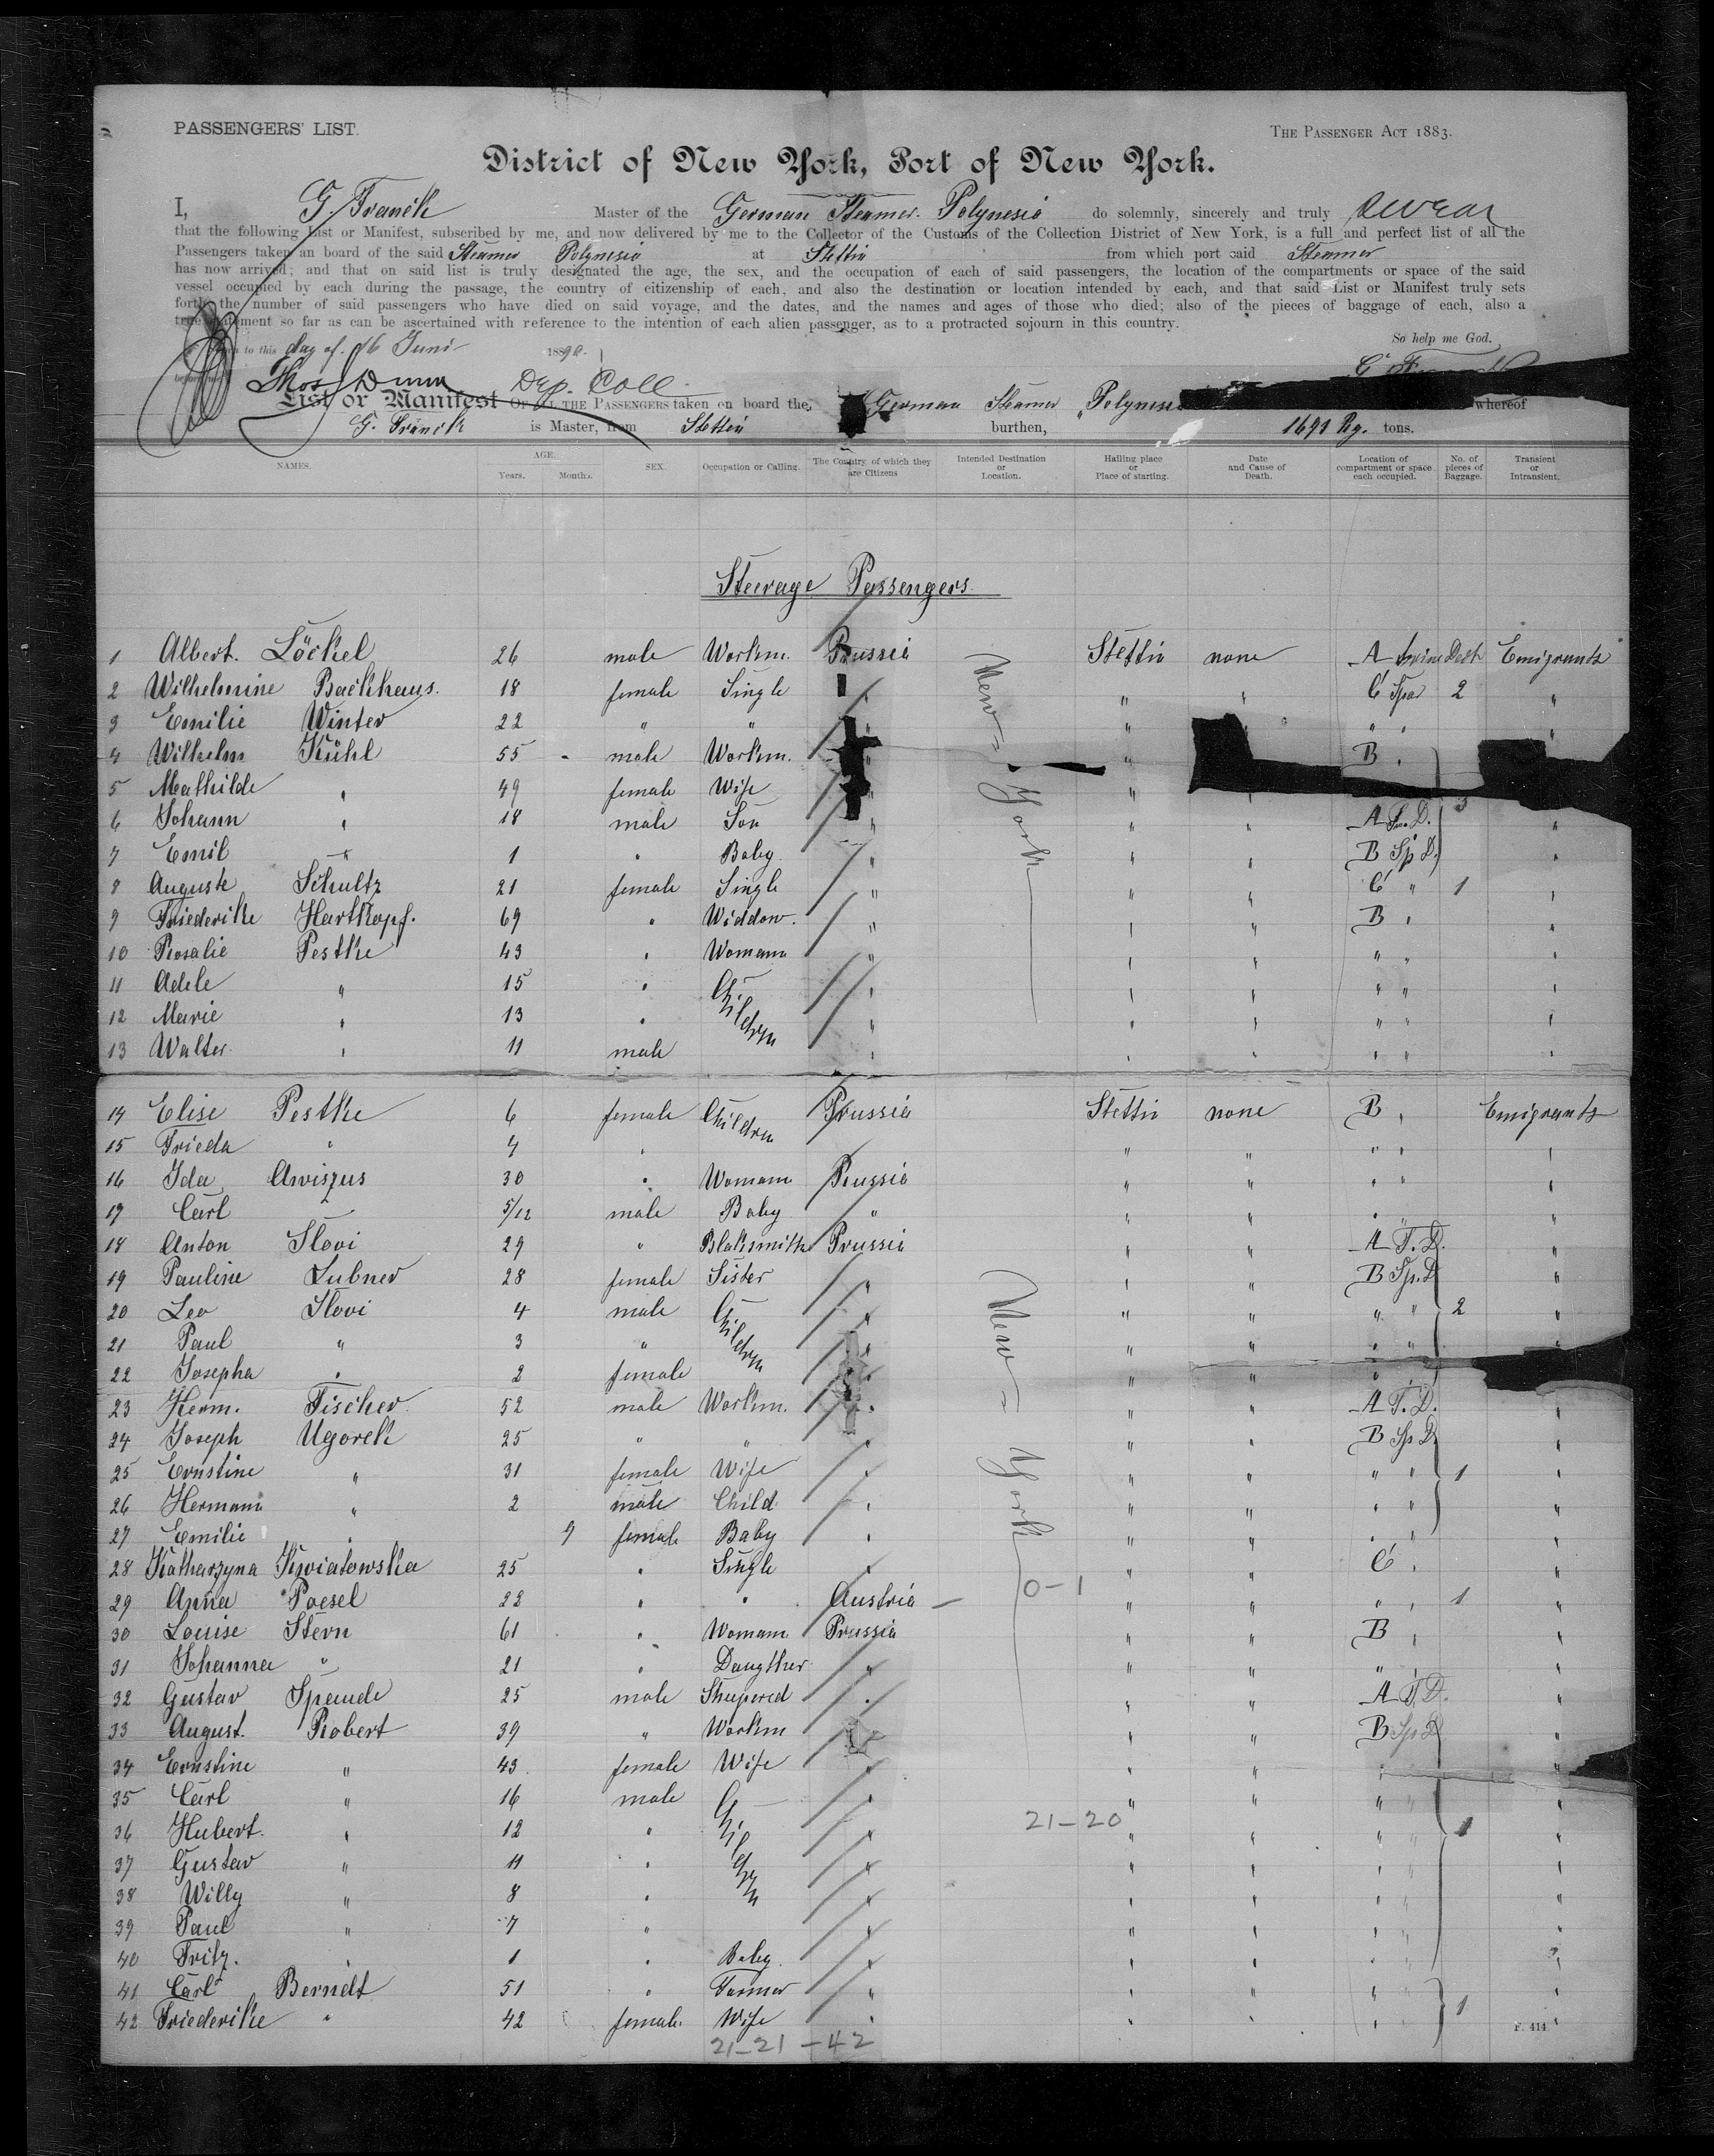 PASSENGERS' LIST.
THE PASSENGER ACT 1883.
District of New York, Port of New York.
I, G. Franck Master of the German Steamer Polynesia do solemnly, sincerely and truly swear
that the following List or Manifest, subscribed by me, and now delivered by me to the Collector of the Customs of the Collection District of New York, is a full and perfect list of all the
Passengers taken on board of the said Steamer Polynesia at Stettin from which port said Steamer
has now arrived; and that on said list is truly designated the age, the sex, and the occupation of each of said passengers, the location of the compartments or space of the said
vessel occupied by each during the passage, the country of citizenship of each, and also the destination or location intended by each, and that said List or Manifest truly sets
forth the number of said passengers who have died on said voyage, and the dates, and the names and ages of those who died; also of the pieces of baggage of each, also a
true statement so far as can be ascertained with reference to the intention of each alien passenger, as to a protracted sojourn in this country.
So help me God.
to this day of 16 Juni 1890.
Thos. Dunn Dep. Coll.
List or Manifest OF ALL THE PASSENGERS taken on board the German Steamer Polynesia whereof
G. Franck is Master, from Stettin burthen, 1691 Rg. tons.
NAMES. AGE. Years. Months. SEX. Occupation or Calling. The Country of which they are Citizens Intended Destination or Location. Hailing place or Place of starting. Date and Cause of Death. Location of compartment or space each occupied. No. of pieces of Baggage. Transient or Intransient.
Steerage Passengers
1 Albert. Löckel 26 male Workm. Prussia Stettin none A Deck Emigrants
2 Wilhelmine Backhaus. 18 female Single " " " C 2 "
3 Emilie Winter 22 " " " " "
4 Wilhelm Kühl 55 - male Workm. " " B "
5 Mathilde " 49 female Wife " " " 3
6 Johann " 18 male Son " " " A T. D. "
7 Emil " 1 " Baby " " " B Sp D. "
8 Auguste Schultz 21 female Single " " " C " 1 "
9 Friederike Hartkopf. 69 " Widdow. " " " B " "
10 Rosalie Pestke 43 " Womann " " " " " "
11 Adele " 15 " Children " " " " " "
12 Marie " 13 " " " " " " "
13 Walter " 11 male " " " " " "
New-York
14 Elise Pestke 6 female Children Prussia Stettin none B " Emigrants
15 Frieda " 4 " " " " " "
16 Ida Awiszus 30 " Womann Prussia " " " " "
17 Carl 5/12 male Baby " " " " "
18 Anton Slovi 29 " Blaksmith Prussia " " A T. D. "
19 Pauline Lubner 28 female Sister " " " B Sp. D "
20 Leo Slovi 4 male Children " " " " " 2 "
21 Paul " 3 " " " " " " "
22 Josepha " 2 female " " " "
23 Herm. Fischer 52 male Workm. " " " A T. D. "
24 Joseph Ugorek 25 " " " " " B Sp D "
25 Ernstine " 31 female Wife " " " " " 1 "
26 Hermann " 2 male Child " " " " " "
27 Emilie " 9 female Baby " " " " " "
28 Katharzyna Kwiatowska 25 " Single " " " C " "
29 Anna Poesel 22 " " Austria - 0-1 " " " " 1 "
30 Louise Stern 61 " Womann Prussia " " B " "
31 Johanna " 21 " Daugther " " " " " "
32 Gustav Spende 25 male Sheepered " " " A T. D. "
33 August. Robert 39 " Workm " " " B Sp D "
34 Ernstine " 43 female Wife " " " " "
35 Carl " 16 male Children " " " " " "
36 Hubert. " 12 " " 21-20 " " " " 1 "
37 Gustav " 11 " " " " " " "
38 Willy " 8 " " " " " " "
39 Paul " 7 " " " " " " "
40 Fritz. " 1 " Baby " " " " " "
41 Carl Berndt 51 " Farmer " " " " " "
42 Friederike " 42 female. Wife " " " " 1 "
New-York
F. 414
21-21-42